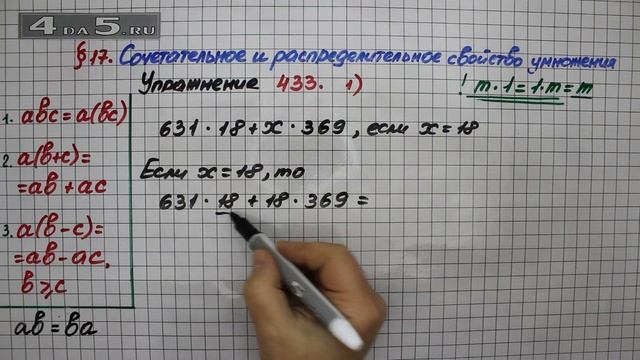 4DA5.RU
§17. Сочетательное и распределительное свойство умножения
Упражнение 433. 1)
! m·1=1·m=m
1. abc=a(bc)
2. a(b+c)=
=ab+ac
3. a(b-c)=
=ab-ac,
b⩾c
ab=ba
631·18+x·369, если x=18
Если x=18, то
631·18+18·369=